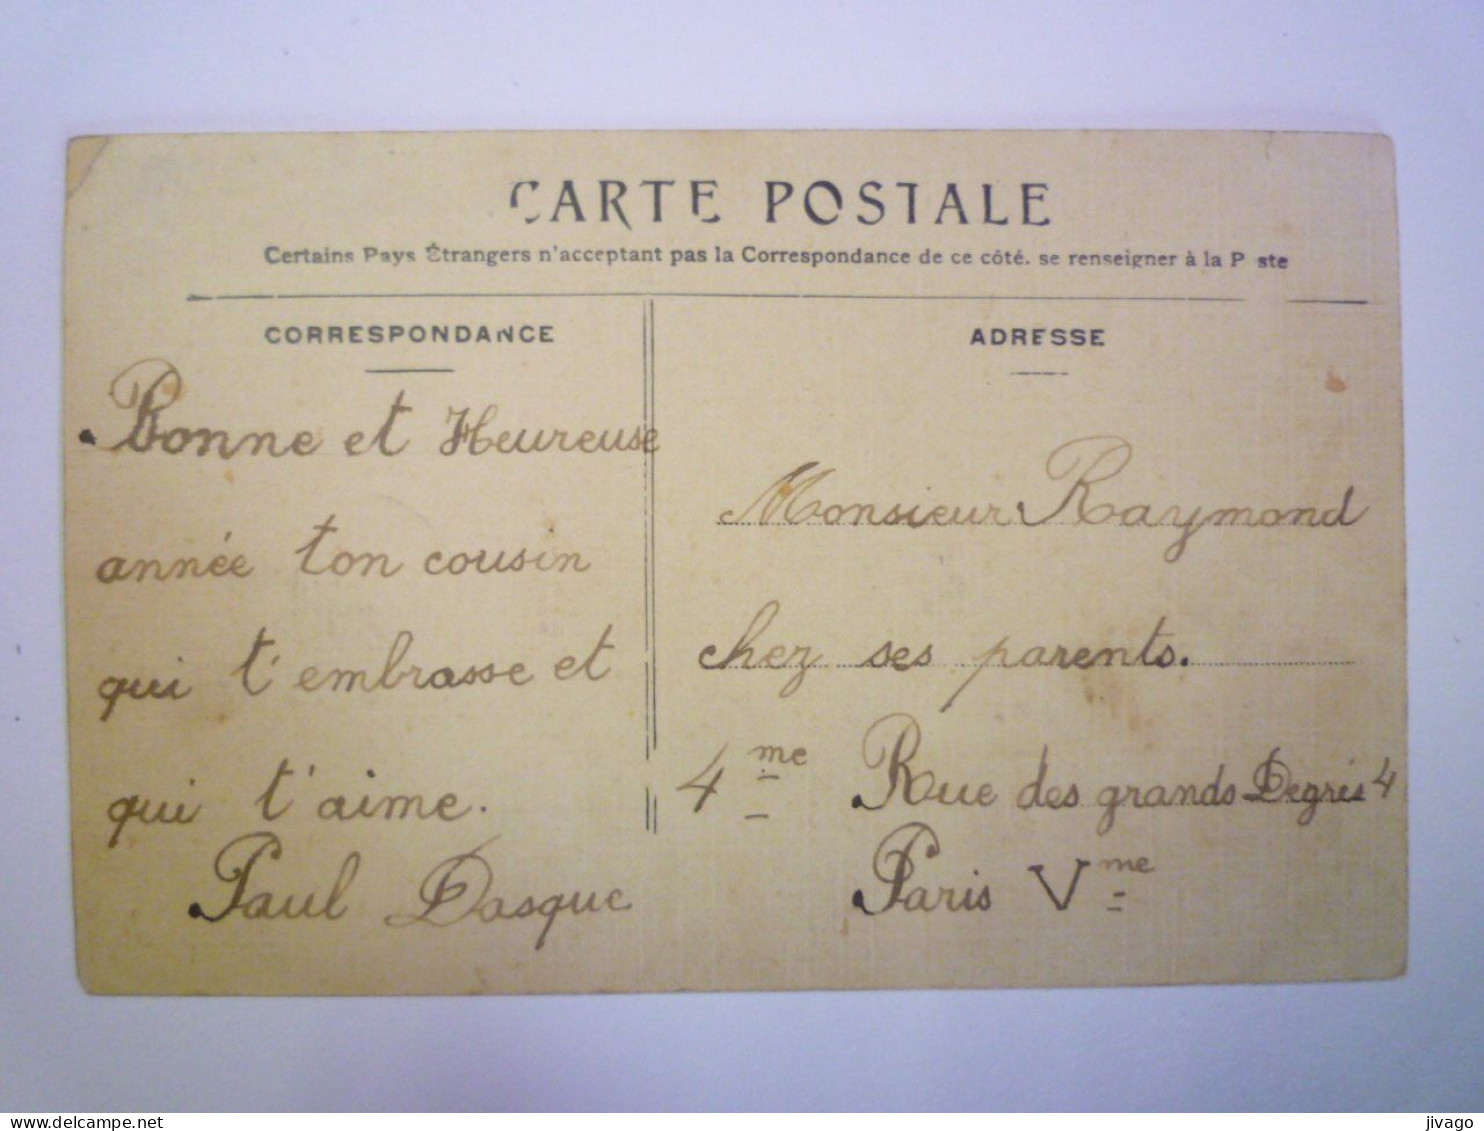 CARTE POSTALE
Certains Pays Étrangers n'acceptant pas la Correspondance de ce côté. se renseigner à la Poste
CORRESPONDANCE
Bonne et Heureuse
année ton cousin
qui t'embrasse et
qui t'aime.
Paul Dasque
ADRESSE
Monsieur Raymond
chez ses parents.
4me Rue des grands Degrés 4
Paris Vme
jivago